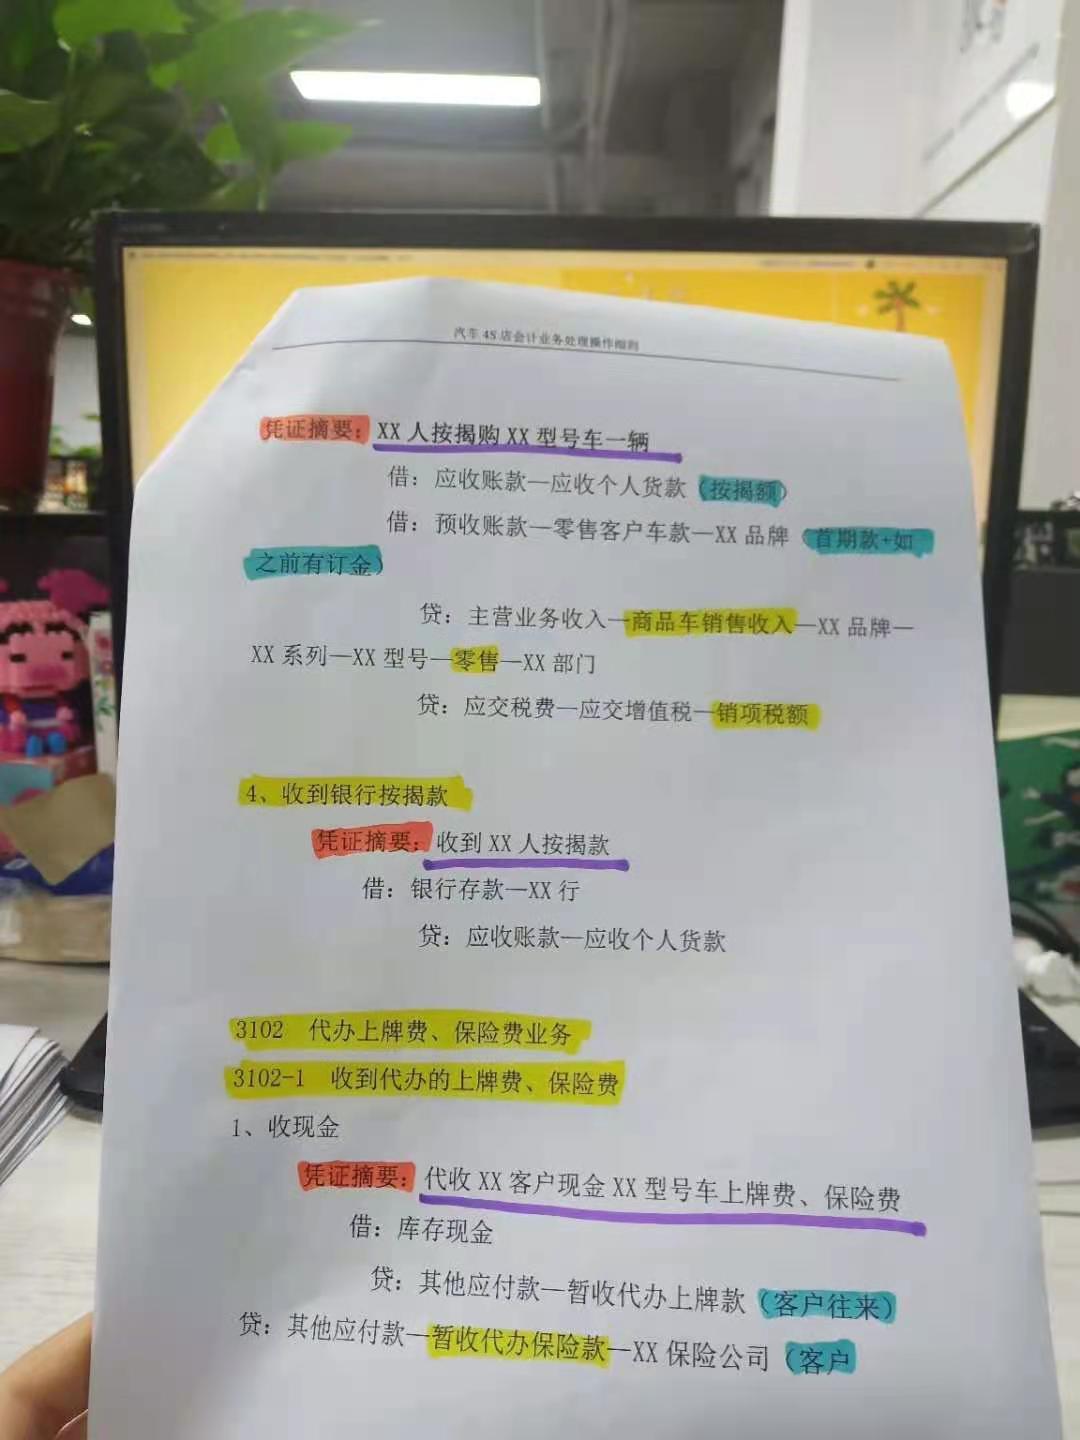 汽车 4S 店会计业务处理操作细则
凭证摘要：XX 人按揭购 XX 型号车一辆
借：应收账款—应收个人货款（按揭额）
借：预收账款—零售客户车款—XX 品牌（首期款+如
之前有订金）
贷：主营业务收入—商品车销售收入—XX 品牌—
XX 系列—XX 型号—零售—XX 部门
贷：应交税费—应交增值税—销项税额
4、收到银行按揭款
凭证摘要：收到 XX 人按揭款
借：银行存款—XX 行
贷：应收账款—应收个人货款
3102 代办上牌费、保险费业务
3102-1 收到代办的上牌费、保险费
1、收现金
凭证摘要：代收 XX 客户现金 XX 型号车上牌费、保险费
借：库存现金
贷：其他应付款—暂收代办上牌款（客户往来）
贷：其他应付款—暂收代办保险款—XX 保险公司（客户